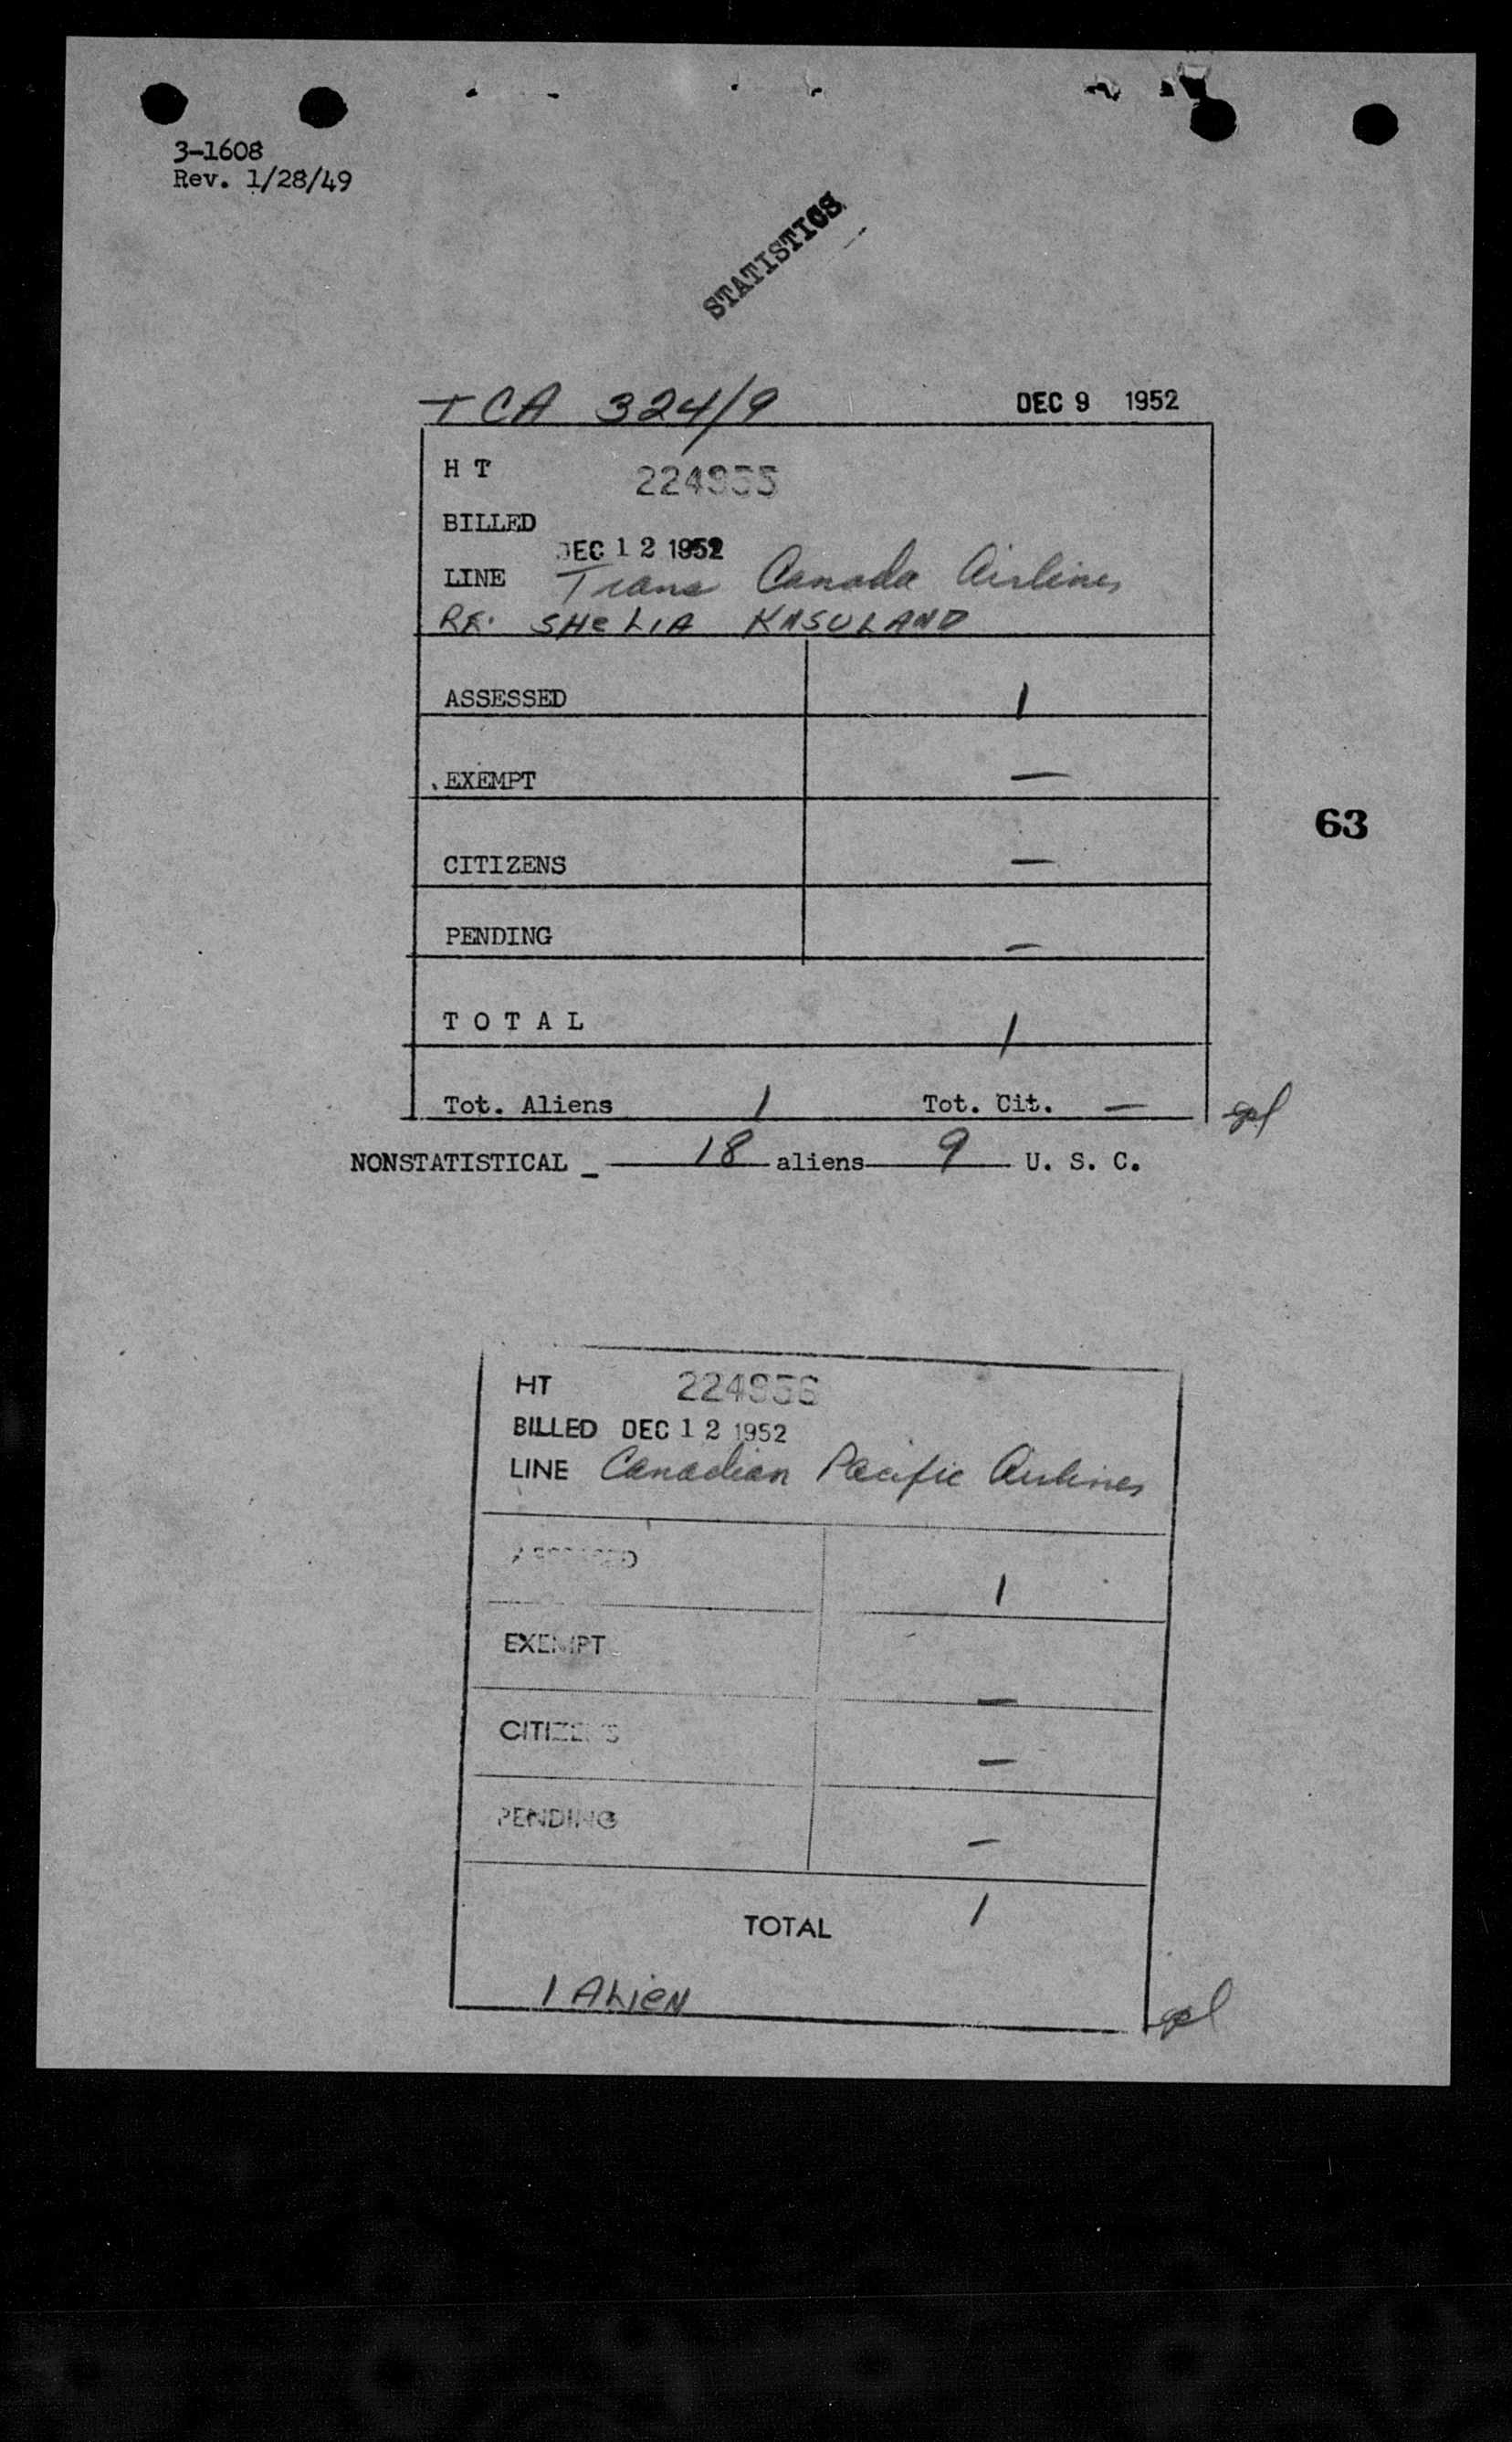 3-1608
Rev. 1/28/49
STATISTICS
TCA 324/9 DEC 9 1952
H T 224955
BILLED
DEC 12 1952
LINE Trans Canada Airlines
RE. SHELIA KNSULAND
ASSESSED 1
EXEMPT —
63
CITIZENS —
PENDING —
T O T A L 1
Tot. Aliens 1 Tot. Cit. —
NONSTATISTICAL 18 aliens 9 U. S. C.
HT 224956
BILLED DEC 12 1952
LINE Canadian Pacific Airlines
ASSESSED 1
EXEMPT —
CITIZENS —
PENDING —
TOTAL 1
1 ALieN